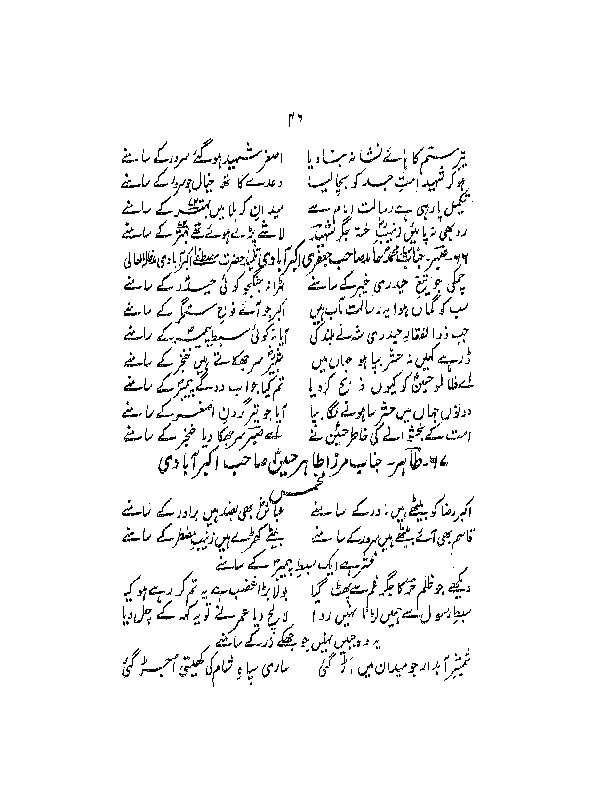 ۴۶
تیرِ ستم کا ہائے نشانہ بنا دیا اصغر شہید ہو گئے سرور کے سامنے
ہو کر شہید امتِ جد کو بچا لیا وعدے کا تھا خیال جو سرور کے سامنے
تکمیل پا رہی ہے رسالت امام سے میدانِ کربلا میں بہتر کے سامنے
رو بھی نہ پائیں زینبِ خستہ جگر شہید لاشے پڑے ہوئے تھے بہتر کے سامنے
۶۶۔ جناب محمد صاحب جعفری اکبرآبادی حضرت اکبرآبادی
چمکی جو تیغِ حیدری خیبر کے سامنے ٹھہرا نہ جنگجو کوئی حیدر کے سامنے
سب کو گماں ہوا یہ رسالت مآب ہیں اکبر جو آئے فوجِ ستمگر کے سامنے
جب ذوالفقارِ حیدری شہ نے بلند کی آیا نہ کوئی سبطِ پیمبر کے سامنے
ڈر ہے کہیں نہ حشر بپا ہو جہاں میں شبیر سر جھکاتے ہیں خنجر کے سامنے
اے ظالمو حسین کو کیوں ذبح کر دیا تم کیا جواب دو گے پیمبر کے سامنے
دونوں جہاں میں حشر سا ہونے لگا بپا آیا جو تیر گردنِ اصغر کے سامنے
امت کے بخشوانے کی خاطر حسین نے اے سر جھکا دیا خنجر کے سامنے
۶۷۔ طاہر۔ جناب مرزا طاہر حسین صاحب اکبرآبادی
مخمس
اکبر رضا کو بیٹھے ہیں مادر کے سامنے عباس بھی بضد ہیں برادر کے سامنے
قاسم بھی آئے بیٹھے ہیں سرور کے سامنے بیٹے کھڑے ہیں زینبِ مضطر کے سامنے
محشر ہے ایک سبطِ پیمبر کے سامنے
دیکھے جو ظلم حر کا جگر غم سے پھٹ گیا بولا بڑا غضب ہے یہ تم کر رہے ہو کیا
سبطِ رسول سے ہمیں لڑنا نہیں روا لالچ دیا عمر نے تو یہ کہہ کے چل دیا
یہ وہ جبیں نہیں جو جھکے زر کے سامنے
شمشیرِ آبدار جو میدان میں اڑ گئی ساری سپاہِ شام کی کھیتی اجڑ گئی